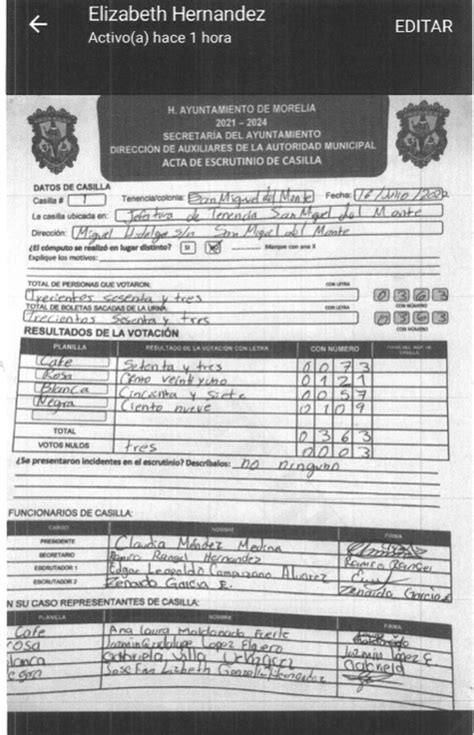 Elizabeth Hernandez
Activo(a) hace 1 hora
EDITAR
H. AYUNTAMIENTO DE MORELIA
2021 - 2024
SECRETARÍA DEL AYUNTAMIENTO
DIRECCIÓN DE AUXILIARES DE LA AUTORIDAD MUNICIPAL
ACTA DE ESCRUTINIO DE CASILLA
DATOS DE CASILLA
Casilla # 1 Tenencia/colonia: San Miguel del Monte Fecha: 16/Julio/2022
La casilla ubicada en: Jefatura de Tenencia San Miguel del Monte
Dirección: Miguel Hidalgo s/n San Miguel del Monte
¿El cómputo se realizó en lugar distinto? SI Marque con una X
Explique los motivos:
TOTAL DE PERSONAS QUE VOTARON: CON LETRA
Trecientos sesenta y tres 0 3 6 3
CON NÚMERO
TOTAL DE BOLETAS SACADAS DE LA URNA CON LETRA
Trecientos Sesenta y tres 0 3 6 3
CON NÚMERO
RESULTADOS DE LA VOTACIÓN
PLANILLA RESULTADO DE LA VOTACIÓN CON LETRA CON NÚMERO
Cafe Setenta y tres 0 0 7 3
Rosa Ciento veintiyuno 0 1 2 1
Blanca Cincuenta y Siete 0 0 5 7
Negra Ciento nueve 0 1 0 9
TOTAL 0 3 6 3
VOTOS NULOS tres 0 0 0 3
¿Se presentaron incidentes en el escrutinio? Descríbalos: no ninguno
FUNCIONARIOS DE CASILLA:
CARGO NOMBRE FIRMA
PRESIDENTE Claudia Méndez Medina
SECRETARIO Ramiro Rangel Hernandez Ramiro Rangel
ESCRUTADOR 1 Edgar Leopoldo Alvarez
ESCRUTADOR 2 Zenaida Garcia R. Zenaida Garcia
N SU CASO REPRESENTANTES DE CASILLA:
PLANILLA NOMBRE FIRMA
Cafe Ana laura Maldonado Fuerte
rosa Jazmin Guadalupe Lopez Jazmin lopez E.
lanca Gabriela Villa Gabriela
egra Jose Lizbeth Hernandez